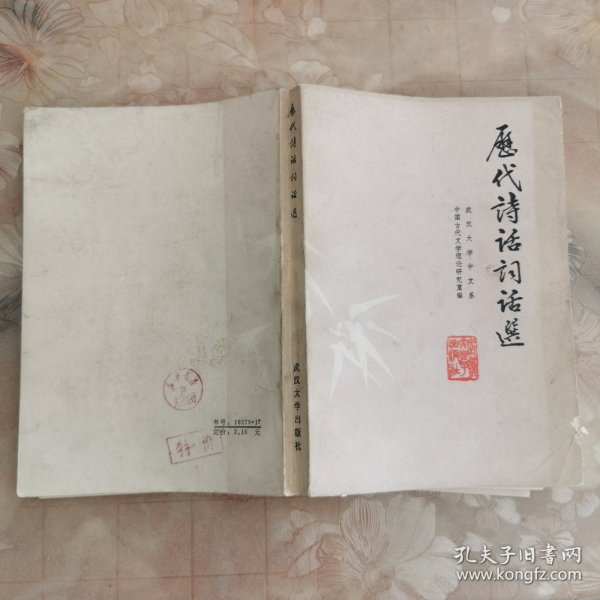 歷代詩话词话選
武汉大学中文系
中国古代文学理论研究室编
歷代詩话词话選
武汉大学出版社
书号：10279·17
定价：2.15 元
特价
孔夫子旧书网
www.kongfz.com